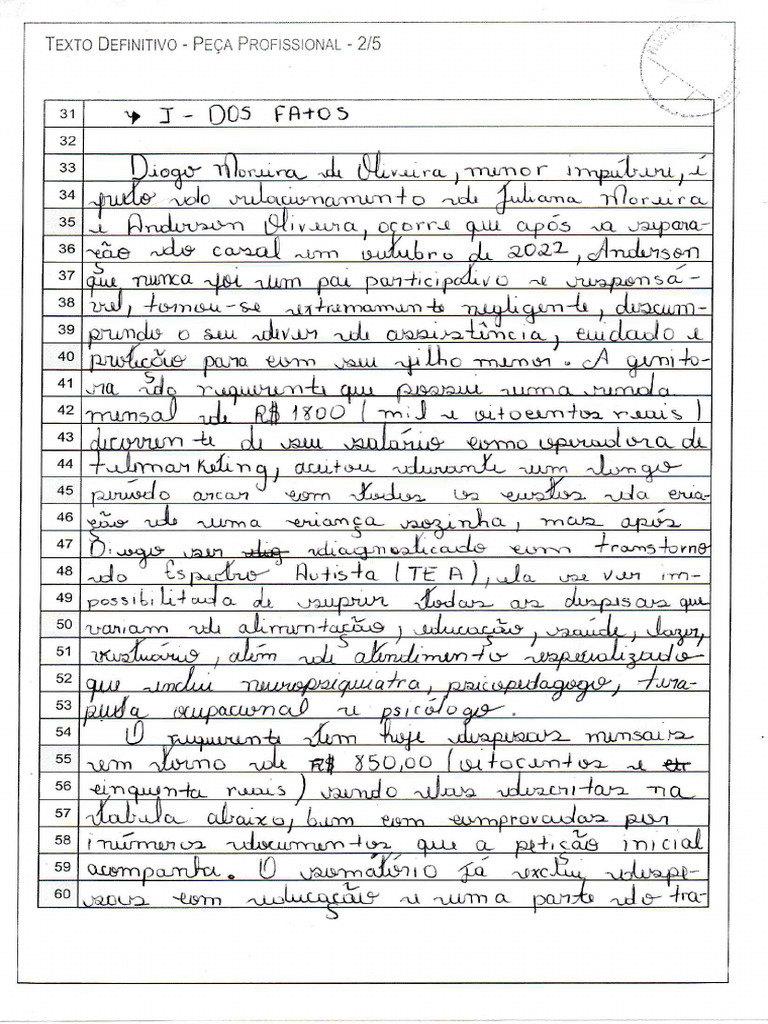 TEXTO DEFINITIVO - PEÇA PROFISSIONAL - 2/5
31 → I - DOS FATOS
32
33 Diogo Moreira de Oliveira, menor impúbere, é
34 fruto do relacionamento de Juliana Moreira
35 e Anderson Oliveira, ocorre que após a separa-
36 ção do casal em outubro de 2022, Anderson
37 que nunca foi um pai participativo e responsá-
38 vel, tornou-se extremamente negligente, descum-
39 prindo o seu dever de assistência, cuidado e
40 proteção para com seu filho menor. A genito-
41 ra do requerente que possui uma renda
42 mensal de R$ 1800 (mil e oitocentos reais)
43 decorrente de seu salário como operadora de
44 telmarketing, aceitou durante um longo
45 período arcar com todos os custos da cria-
46 ção de uma criança sozinha, mas após
47 Diogo ser diagnosticado com transtorno
48 do Espectro Autista (TEA), ela se ver im-
49 possibilitada de suprir todas as despesas que
50 variam de alimentação, educação, saúde, lazer,
51 vestuário, além de atendimento especializado
52 que inclui neuropsiquiatra, psicopedagogo, tera-
53 peuta ocupacional e psicólogo.
54 O requerente tem hoje despesas mensais
55 em torno de R$ 850,00 (oitocentos e
56 cinquenta reais) sendo elas descritas na
57 tabela abaixo, bem com comprovadas por
58 inúmeros documentos que a petição inicial
59 acompanha. O somatório já exclui despe-
60 sas com educação e uma parte do tra-